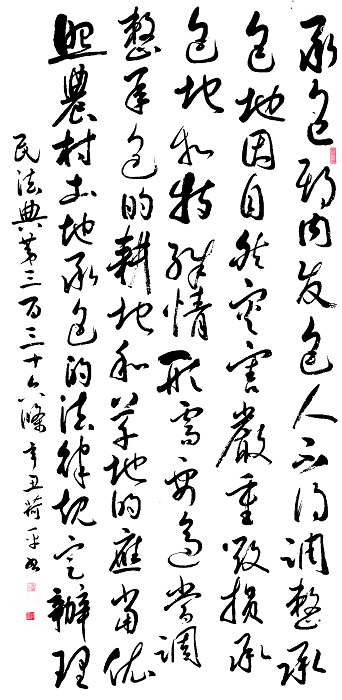 承包期内发包人不得調整承
包地因自然灾害嚴重毀損承
包地等特殊情形需要適當調
整承包的耕地和草地的應當依
照農村土地承包的法律規定辦理
民法典第三百三十六條辛丑平書